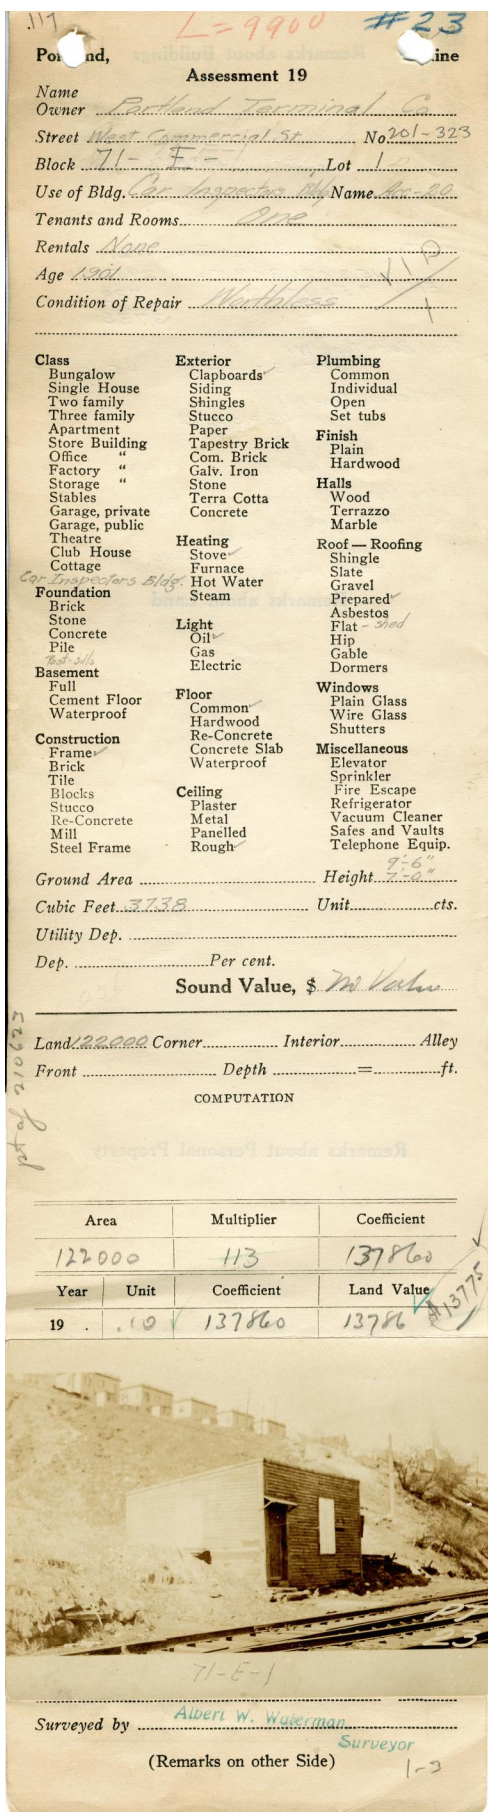 .117 L=9900 #23
Portland, Maine
Assessment 19
Name
Owner Portland Terminal Co
Street West Commercial St. No. 201-323
Block 71- E - Lot 1
Use of Bldg. Car Inspectors Bldg Name Acc-20
Tenants and Rooms One
Rentals None
Age 1901
Condition of Repair Worthless
Class
Bungalow
Single House
Two family
Three family
Apartment
Store Building
Office "
Factory "
Storage "
Stables
Garage, private
Garage, public
Theatre
Club House
Cottage
Car Inspectors Bldg.
Foundation
Brick
Stone
Concrete
Pile
Post-sills
Basement
Full
Cement Floor
Waterproof
Construction
Frame ✓
Brick
Tile
Blocks
Stucco
Re-Concrete
Mill
Steel Frame
Exterior
Clapboards ✓
Siding
Shingles
Stucco
Paper
Tapestry Brick
Com. Brick
Galv. Iron
Stone
Terra Cotta
Concrete
Heating
Stove ✓
Furnace
Hot Water
Steam
Light
Oil ✓
Gas
Electric
Floor
Common ✓
Hardwood
Re-Concrete
Concrete Slab
Waterproof
Ceiling
Plaster
Metal
Panelled
Rough ✓
Plumbing
Common
Individual
Open
Set tubs
Finish
Plain
Hardwood
Halls
Wood
Terrazzo
Marble
Roof — Roofing
Shingle
Slate
Gravel
Prepared ✓
Asbestos
Flat - shed
Hip
Gable
Dormers
Windows
Plain Glass
Wire Glass
Shutters
Miscellaneous
Elevator
Sprinkler
Fire Escape
Refrigerator
Vacuum Cleaner
Safes and Vaults
Telephone Equip.
9'-6"
Ground Area Height 7'-0"
Cubic Feet 3738 Unit cts.
Utility Dep.
Dep. Per cent.
Sound Value, $ No Value
pt of 210623
Land 122000 Corner Interior Alley
Front Depth = ft.
COMPUTATION
Area Multiplier Coefficient
122000 113 137860
Year Unit Coefficient Land Value
19 . .10 ✓ 137860 13786 ✓ $13775
71-E-1
Surveyed by Albert W. Waterman
Surveyor
(Remarks on other Side)
1-3